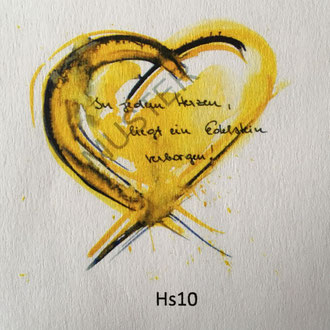 In jedem Herzen,
liegt ein Edelstein
verborgen!
MUSTER
Hs10